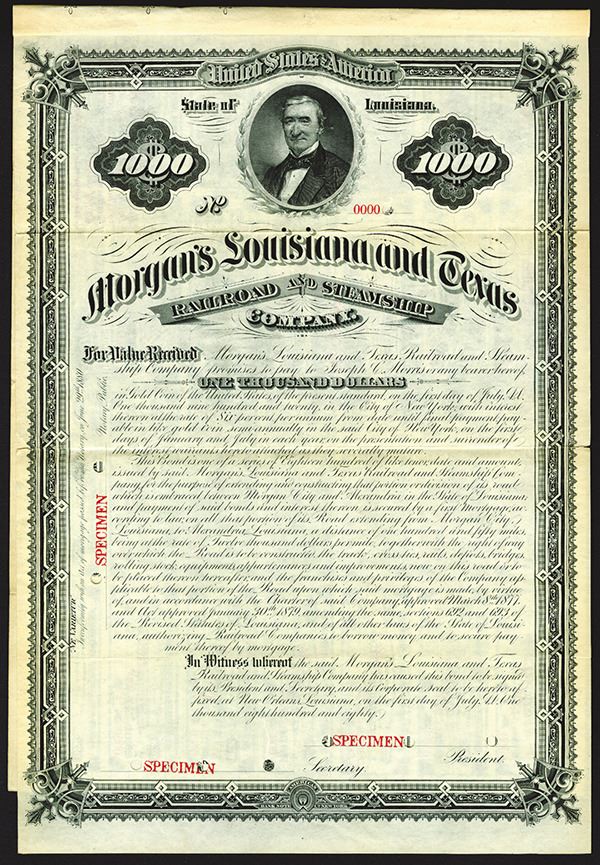 United States of America
State of Louisiana.
1000 1000
No 0000
Morgan's Louisiana and Texas
RAILROAD AND STEAMSHIP
COMPANY.
For Value Received, Morgan's Louisiana and Texas Railroad and Steam-
ship Company promises to pay to Joseph C. Morris or any bearer hereof,
ONE THOUSAND DOLLARS
in Gold Coin of the United States, of the present standard, on the first day of July A.D.
One thousand nine hundred and twenty, in the City of New York, with interest
thereon at the rate of Six per cent per annum from the date until final payment, pay-
able in like gold coin semi-annually in the said City of New York, on the first
days of January and July in each year, on the presentation and surrender of
the interest warrants hereto attached as they severally mature.
This Bond is one of a series of Eighteen hundred of like tenor, date and amount,
issued by said Morgan's Louisiana and Texas Railroad and Steamship Com-
pany for the purpose of executing and constructing that portion or division of its road
which is embraced between Morgan City and Alexandria in the State of Louisiana;
and payment of said bonds and interest thereon is secured by a first Mortgage, ac-
cording to law, on all that portion of its Road extending from Morgan City,
Louisiana, to Alexandria, Louisiana, a distance of one hundred and fifty miles,
being at the rate of Twelve thousand dollars per mile, together with the right of way
over which the Road is to be constructed, the track, cross ties, rails, depots, bridges,
rolling stock, equipments, appurtenances and improvements, now on this road or to
be placed thereon hereafter, and the franchises and privileges of the Company ap-
plicable to that portion of the Road upon which said mortgage is made, by virtue
of, and in accordance with the Charter of said Company, approved March 1877,
and Act approved January 30th 1879 amending the same, sections 692 and
the Revised Statutes of Louisiana, and of all other laws of the State of Louisi-
ana, authorizing Railroad Companies to borrow money and to secure pay-
ment thereof by mortgage.
In Witness whereof the said Morgan's Louisiana and Texas
Railroad and Steamship Company has caused this bond to be signed
by its President and Secretary, and its Corporate seal to be hereto af-
fixed, at New Orleans, Louisiana, on the first day of July A.D. One
thousand eight hundred and eighty.
SPECIMEN
President.
SPECIMEN
Secretary.
SPECIMEN
NE VARIETUR
Notary Public.
AMERICAN
BANK NOTE